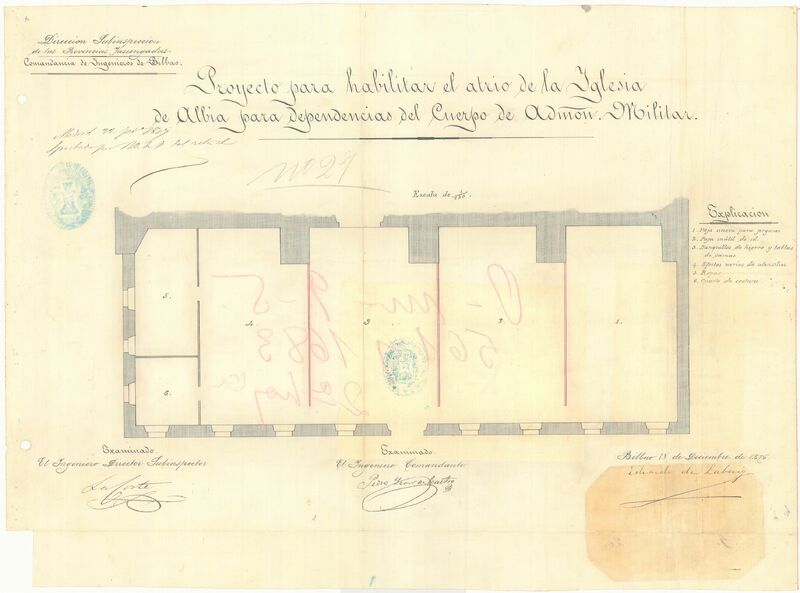 Direccion Subinspeccion
de las Provincias Vascongadas.
Comandancia de Ingenieros de Bilbao.
Proyecto para habilitar el atrio de la Yglesia
de Albia para dependencias del Cuerpo de Admon. Militar.
Madrid 22
Aprobado por
nº 27
Escala de 1/100.
Explicacion
1. Paja nueva para gergones
2. Paja inútil de id.
3. Banquillos de hierro y tablas
de camas
4. Efectos varios de utensilios
5. Ropas
6. Cuarto de costura
5.
4.
3
2.
1.
6.
Examinado
El Ingeniero Director Subinspector
Examinado
El Ingeniero Comandante
Pedro
Bilbao 18 de Diciembre de 1876
Eduardo de